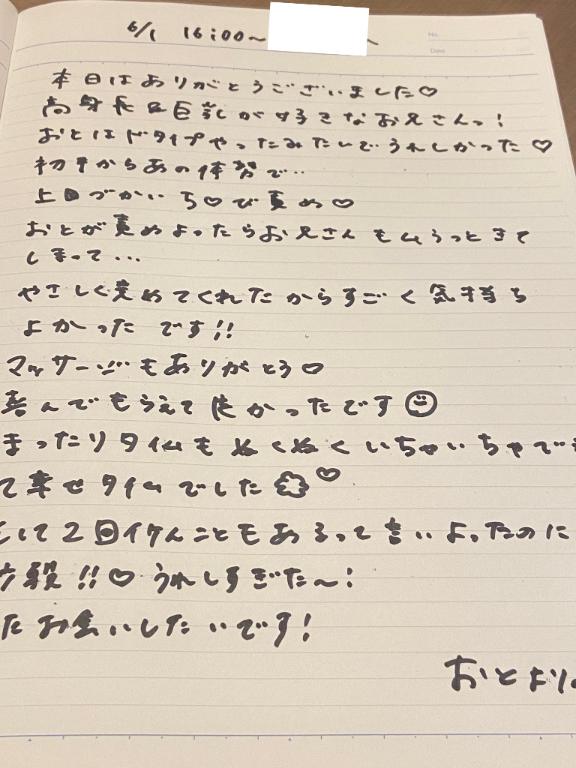 6/1 16:00〜 〜
No.
Date
本日はありがとうございました♡
高身長且巨乳が好きなお兄さんっ!
おとはドタイプやったみたいでうれしかった♡
初手からあの体勢で‥
上目づかいち♡び責め♡
おとが責めよったらお兄さんもムラっときて
しまって...
やさしく責めてくれたからすごく気持ち
よかったです!!
マッサージもありがとう♡
喜んでもらえて良かったです☺
まったりタイムもぬくぬくいちゃいちゃでき
て幸せタイムでした♡
して2回イケんこともあるって言いよったのに
験!!♡うれしすぎた〜!
たお会いしたいです!
おとより